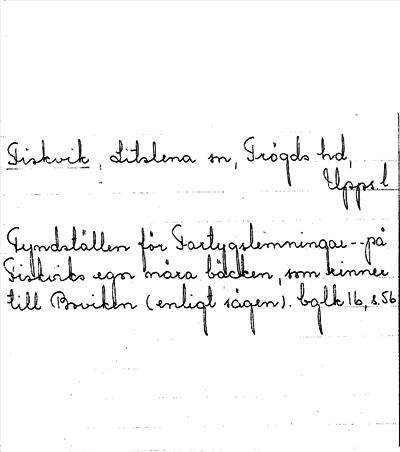 Fiskvik, Litslena sn, Trögds hd,
Upps. l
Fyndställen för Fartygslemningar -- på
Fiskviks egor nära bäcken, som rinner
till Boviken (enligt sägen). bglk 16, s. 56